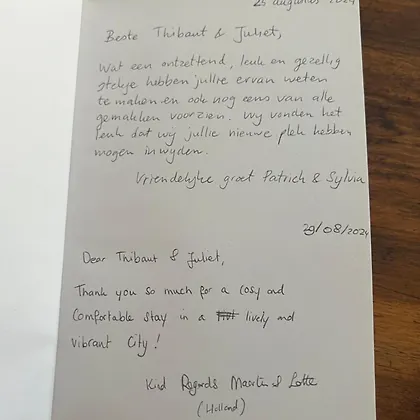 25 augustus 2024
Beste Thibaut & Juliet,
Wat een ontzettend, leuk en gezellig
stekje hebben jullie ervan weten
te maken en ook nog eens van alle
gemakken voorzien. Wij vonden het
leuk dat wij jullie nieuwe plek hebben
mogen inwijden.
Vriendelijke groet Patrick & Sylvia
29/08/2024
Dear Thibaut & Juliet,
Thank you so much for a cosy and
comfortable stay in a lively and
vibrant City!
Kind Regards Maarten & Lotte
(Holland)